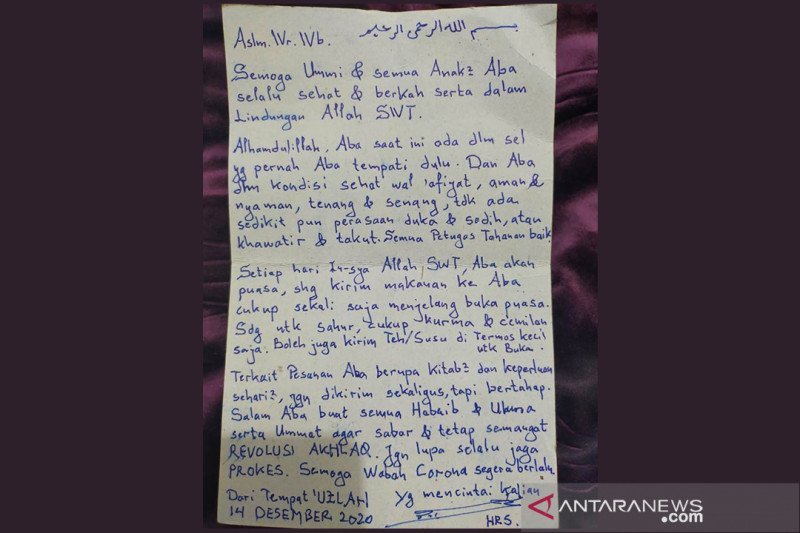 بسم الله الرحمن الرحيم
Aslm. Wr. Wb.
Semoga Ummi & semua Anak2 Aba
selalu sehat & berkah serta dalam
Lindungan Allah SWT.
Alhamdulillah, Aba saat ini ada dlm sel
yg pernah Aba tempati dulu. Dan Aba
dlm kondisi sehat wal 'afiyat, aman &
nyaman, tenang & senang, tdk ada
sedikit pun perasaan duka & sedih, atau
khawatir & takut. Semua Petugas Tahanan baik.
Setiap hari In-sya Allah SWT, Aba akan
puasa, shg kirim makanan ke Aba
cukup sekali saja menjelang buka puasa.
Sdg utk sahur, cukup kurma & cemilan
saja. Boleh juga kirim Teh/Susu di Termos kecil
utk Buka.
Terkait Pesanan Aba berupa kitab2 dan keperluan
sehari2, jgn dikirim sekaligus, tapi bertahap.
Salam Aba buat semua Habaib & Ulama
serta Ummat agar sabar & tetap semangat
REVOLUSI AKHLAQ. Jgn lupa selalu jaga
PROKES. Semoga Wabah Corona segera berlalu.
Dari Tempat 'UZLAH Yg mencintai kalian
14 DESEMBER 2020
HRS.
ANTARANEWS
.com